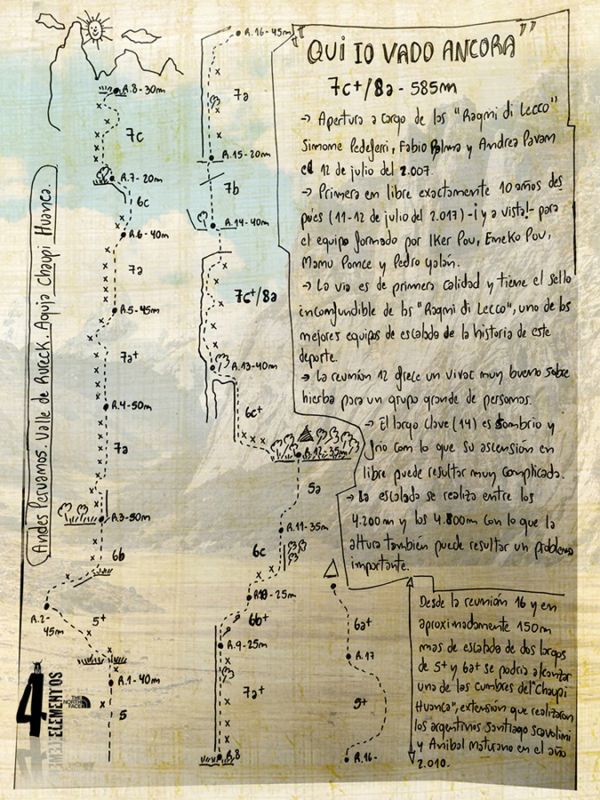 "QUI IO VADO ANCORA"
7c+/8a - 585m
→ Apertura a cargo de los "Ragni di Lecco"
Simone Pedeferri, Fabio Palma y Andrea Pavan
el 12 de julio del 2.007.
→ Primera en libre exactamente 10 años des
pués (11-12 de julio del 2.017) -¡y a vista!- para
el equipo formado por Iker Pou, Eneko Pou,
Manu Ponce y Pedro Galán.
→ La via es de primera calidad y tiene el sello
inconfundible de los "Ragni di Lecco", uno de los
mejores equipos de escalada de la historia de este
deporte.
→ La reunión 12 ofrece un vivac muy bueno sobre
hierba para un grupo grande de personas.
→ El largo clave (14) es sombrio y
frio con lo que su ascensión en
libre puede resultar muy complicada.
→ La escalada se realiza entre los
4.200m y los 4.800m con lo que la
altura también puede resultar un problema
importante.
Desde la reunión 16 y en
aproximadamente 150m
mas de escalada de dos largos
de 5+ y 6a+ se podria alcanzar
una de las cumbres del "Chaupi
Huanca", extensión que realizaron
los argentinos Santiago Scavolini
y Anibal Maturano en el año
2.010.
Andes Peruanos. Valle de Rureck. Aguja Chaupi Huanca.
R.8-30m
7c
R.7-20m
6c
R.6-40m
7a
R.5-45m
7a+
R.4-50m
7a
R.3-50m
6b
R.2-
45m
5+
R.1-40m
5
R.16-45m
7a
R.15-20m
7b
R.14-40m
7c+/8a
R.13-40m
6c+
R.12-35m
5a
R.11-35m
6c
R.10-25m
6b+
R.9-25m
7a+
R.8
6a+
R.17
5+
R.16-
4 ELEMENTOS
THE
NORTH
FACE